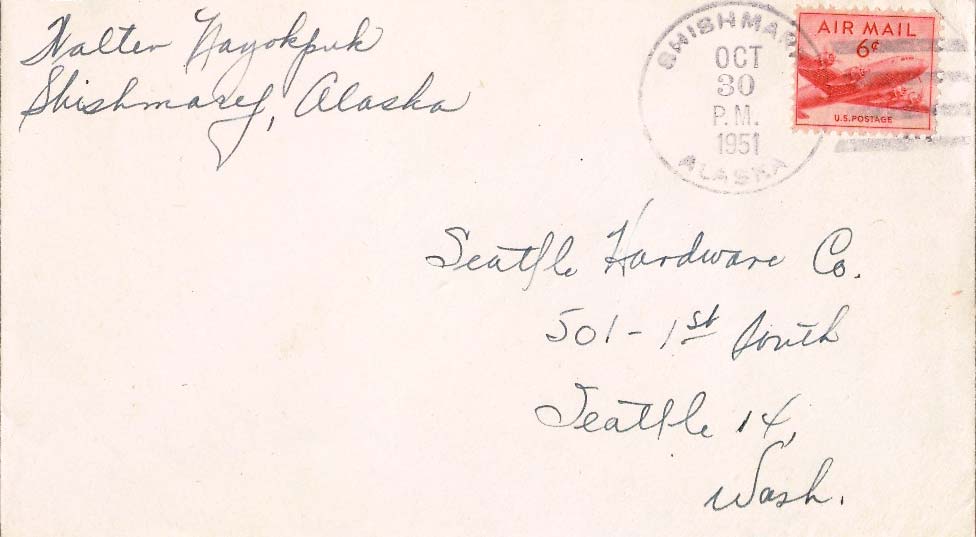 Walter Nayokpuk
Shishmaref, Alaska
SHISHMAR
OCT
30
P.M.
1951
ALASKA
AIR MAIL
6¢
U.S. POSTAGE
Seattle Hardware Co.
501 - 1st South
Seattle 14,
Wash.